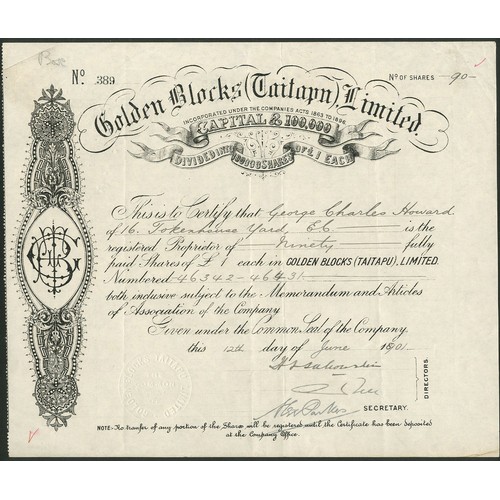 Nº 389
Nº OF SHARES -90-
Golden Blocks (Taitapu), Limited.
INCORPORATED UNDER THE COMPANIES ACTS 1863 TO 1894
CAPITAL £100,000
DIVIDED INTO 100000 SHARES OF £1 EACH
This is to Certify that George Charles Howard
of 16, Tokenhouse Yard, E.C. is the
registered Proprietor of Ninety fully
paid Shares of £1 each in GOLDEN BLOCKS (TAITAPU), LIMITED.
Numbered 46342-46431
both inclusive subject to the Memorandum and Articles
of Association of the Company
Given under the Common Seal of the Company.
this 12th day of June 1901
DIRECTORS.
SECRETARY.
NOTE:-No transfer of any portion of the Shares will be registered until the Certificate has been deposited
at the Company's Office.